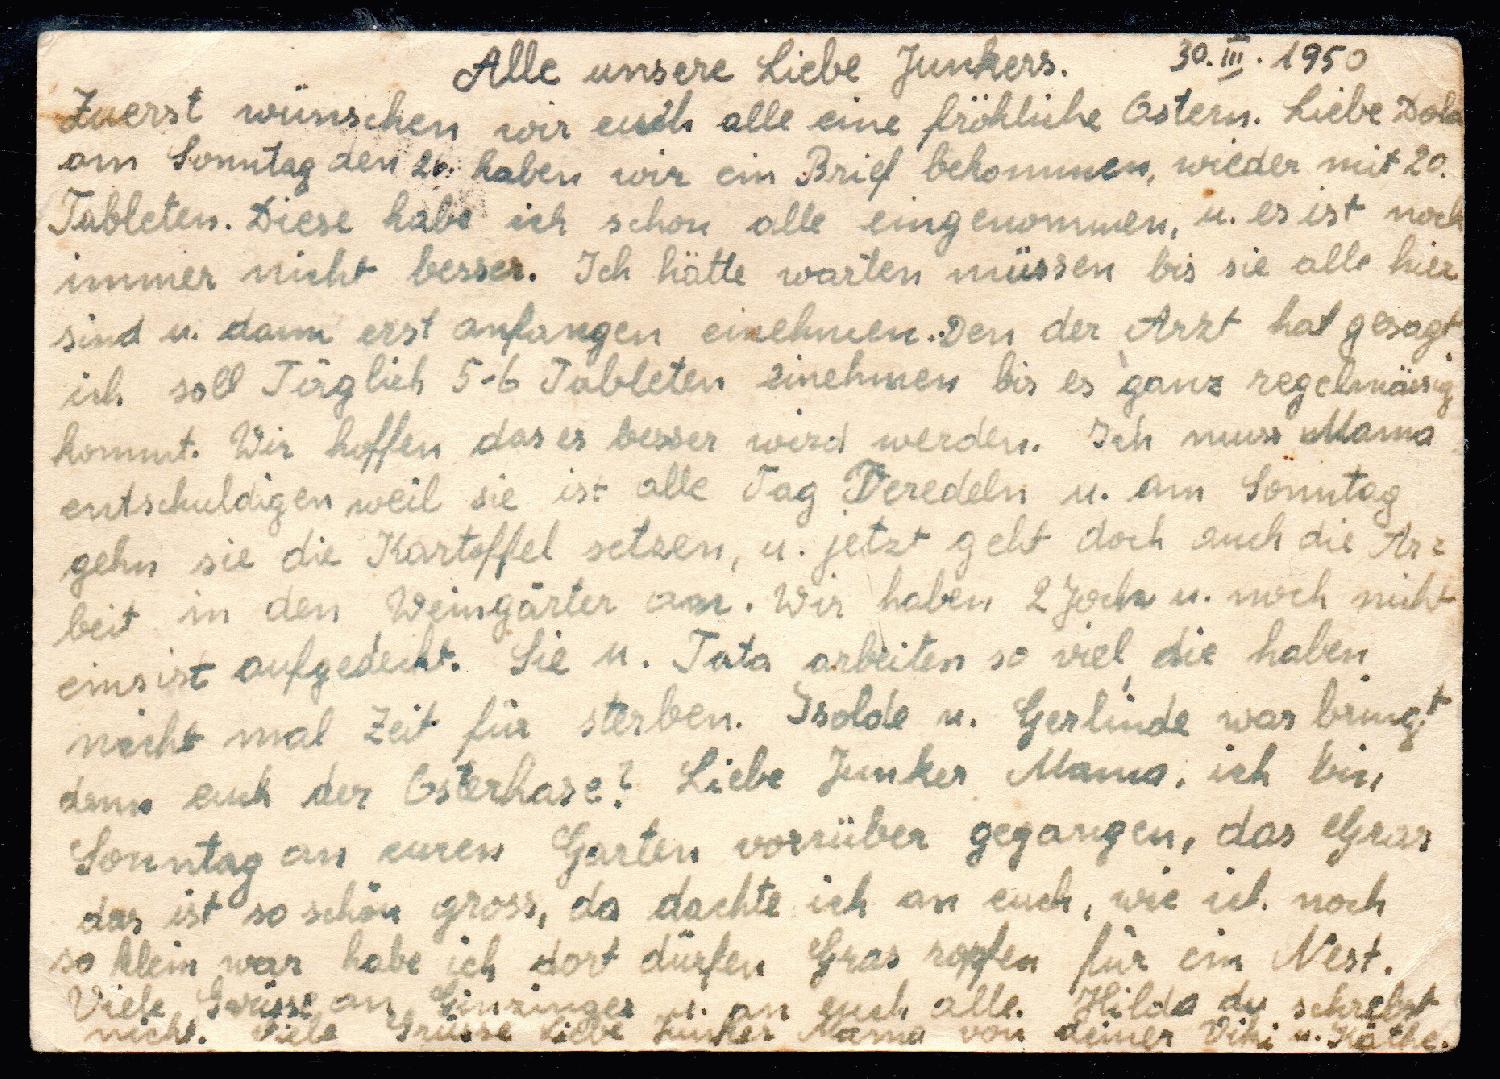 Alle unsere Liebe Junkers. 30.III.1950
Zuerst wünschen wir euch alle eine fröhliche Ostern. Liebe Dola
am Sonntag den 26. haben wir ein Brief bekommen, wieder mit 20.
Tableten. Diese habe ich schon alle eingenommen, u. es ist noch
immer nicht besser. Ich hätte warten müssen bis sie alle hier
sind u. dann erst anfangen einehmen. Den der Arzt hat gesagt
ich soll Täglich 5-6 Tableten einehmen bis es ganz regelmässig
kommt. Wir hoffen das es besser wird werden. Ich muss Mama
entschuldigen weil sie ist alle Tag Veredeln u. am Sonntag
gehn sie die Kartoffel setzen, u. jetzt geht doch auch die Ar=
beit in den Weingärter an. Wir haben 2 Joch u. noch nicht
eins ist aufgedeckt. Sie u. Tata arbeiten so viel, die haben
nicht mal Zeit für sterben. Isolde u. Gerlinde was bringt
denn euch der Osterhase? Liebe Junker Mama, ich bin
Sonntag an euren Garten vorrüber gegangen, das Gras
das ist so schön gross, da dachte ich an euch, wie ich noch
so klein war habe ich dort dürfen Gras ropfen für ein Nest.
Viele Grüsse an Ginzinger u. an euch alle. Hilda du schrebst
nicht. Viele Grüsse Liebe Junker Mama von deiner Viki u. Käthe.